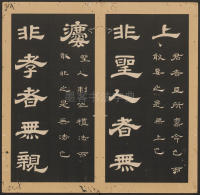 上
君者臣所稟命也而
敢要之是無上也
非聖人者無
灋
聖人制作禮法而
敢非之是無法也
非孝者無親